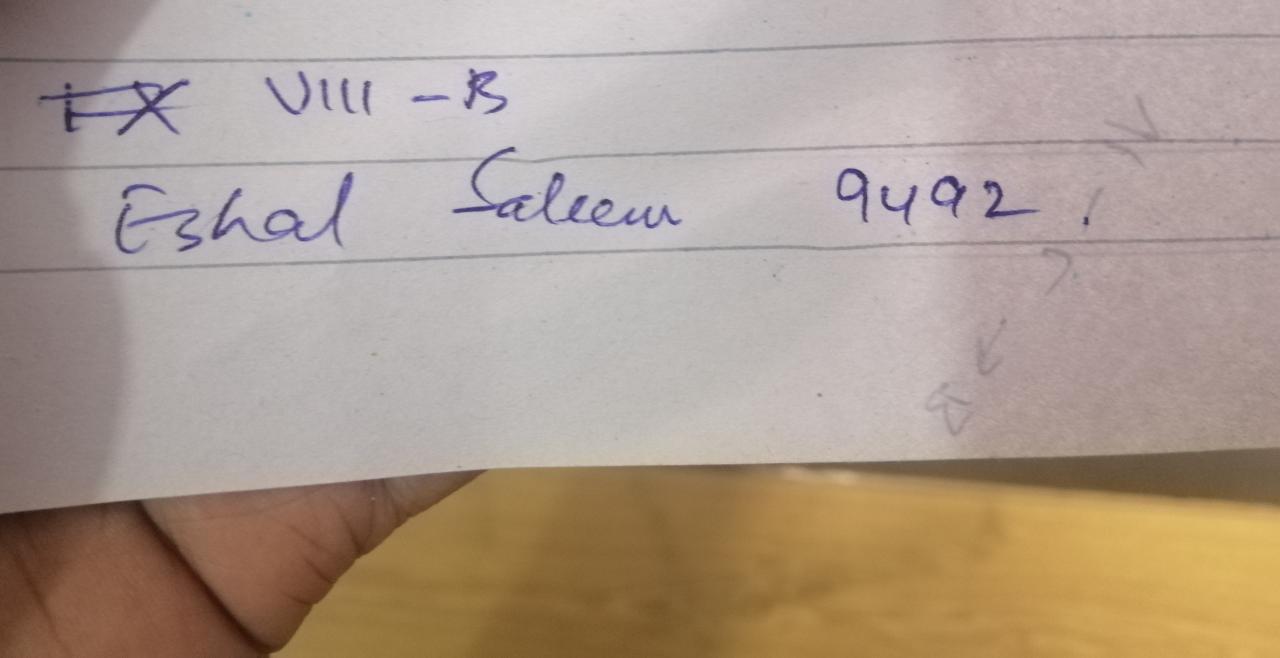 VIII - B
Eshal Saleem 9492.